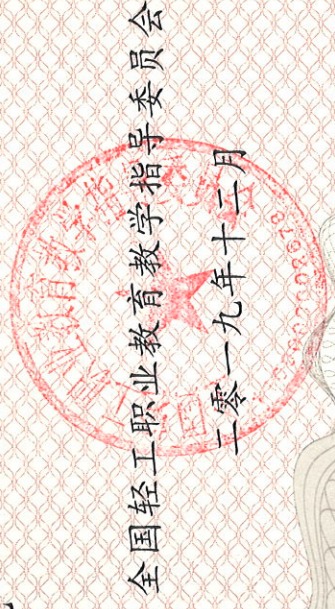 全国轻工职业教育教学指导委员会
二零一九年十二月